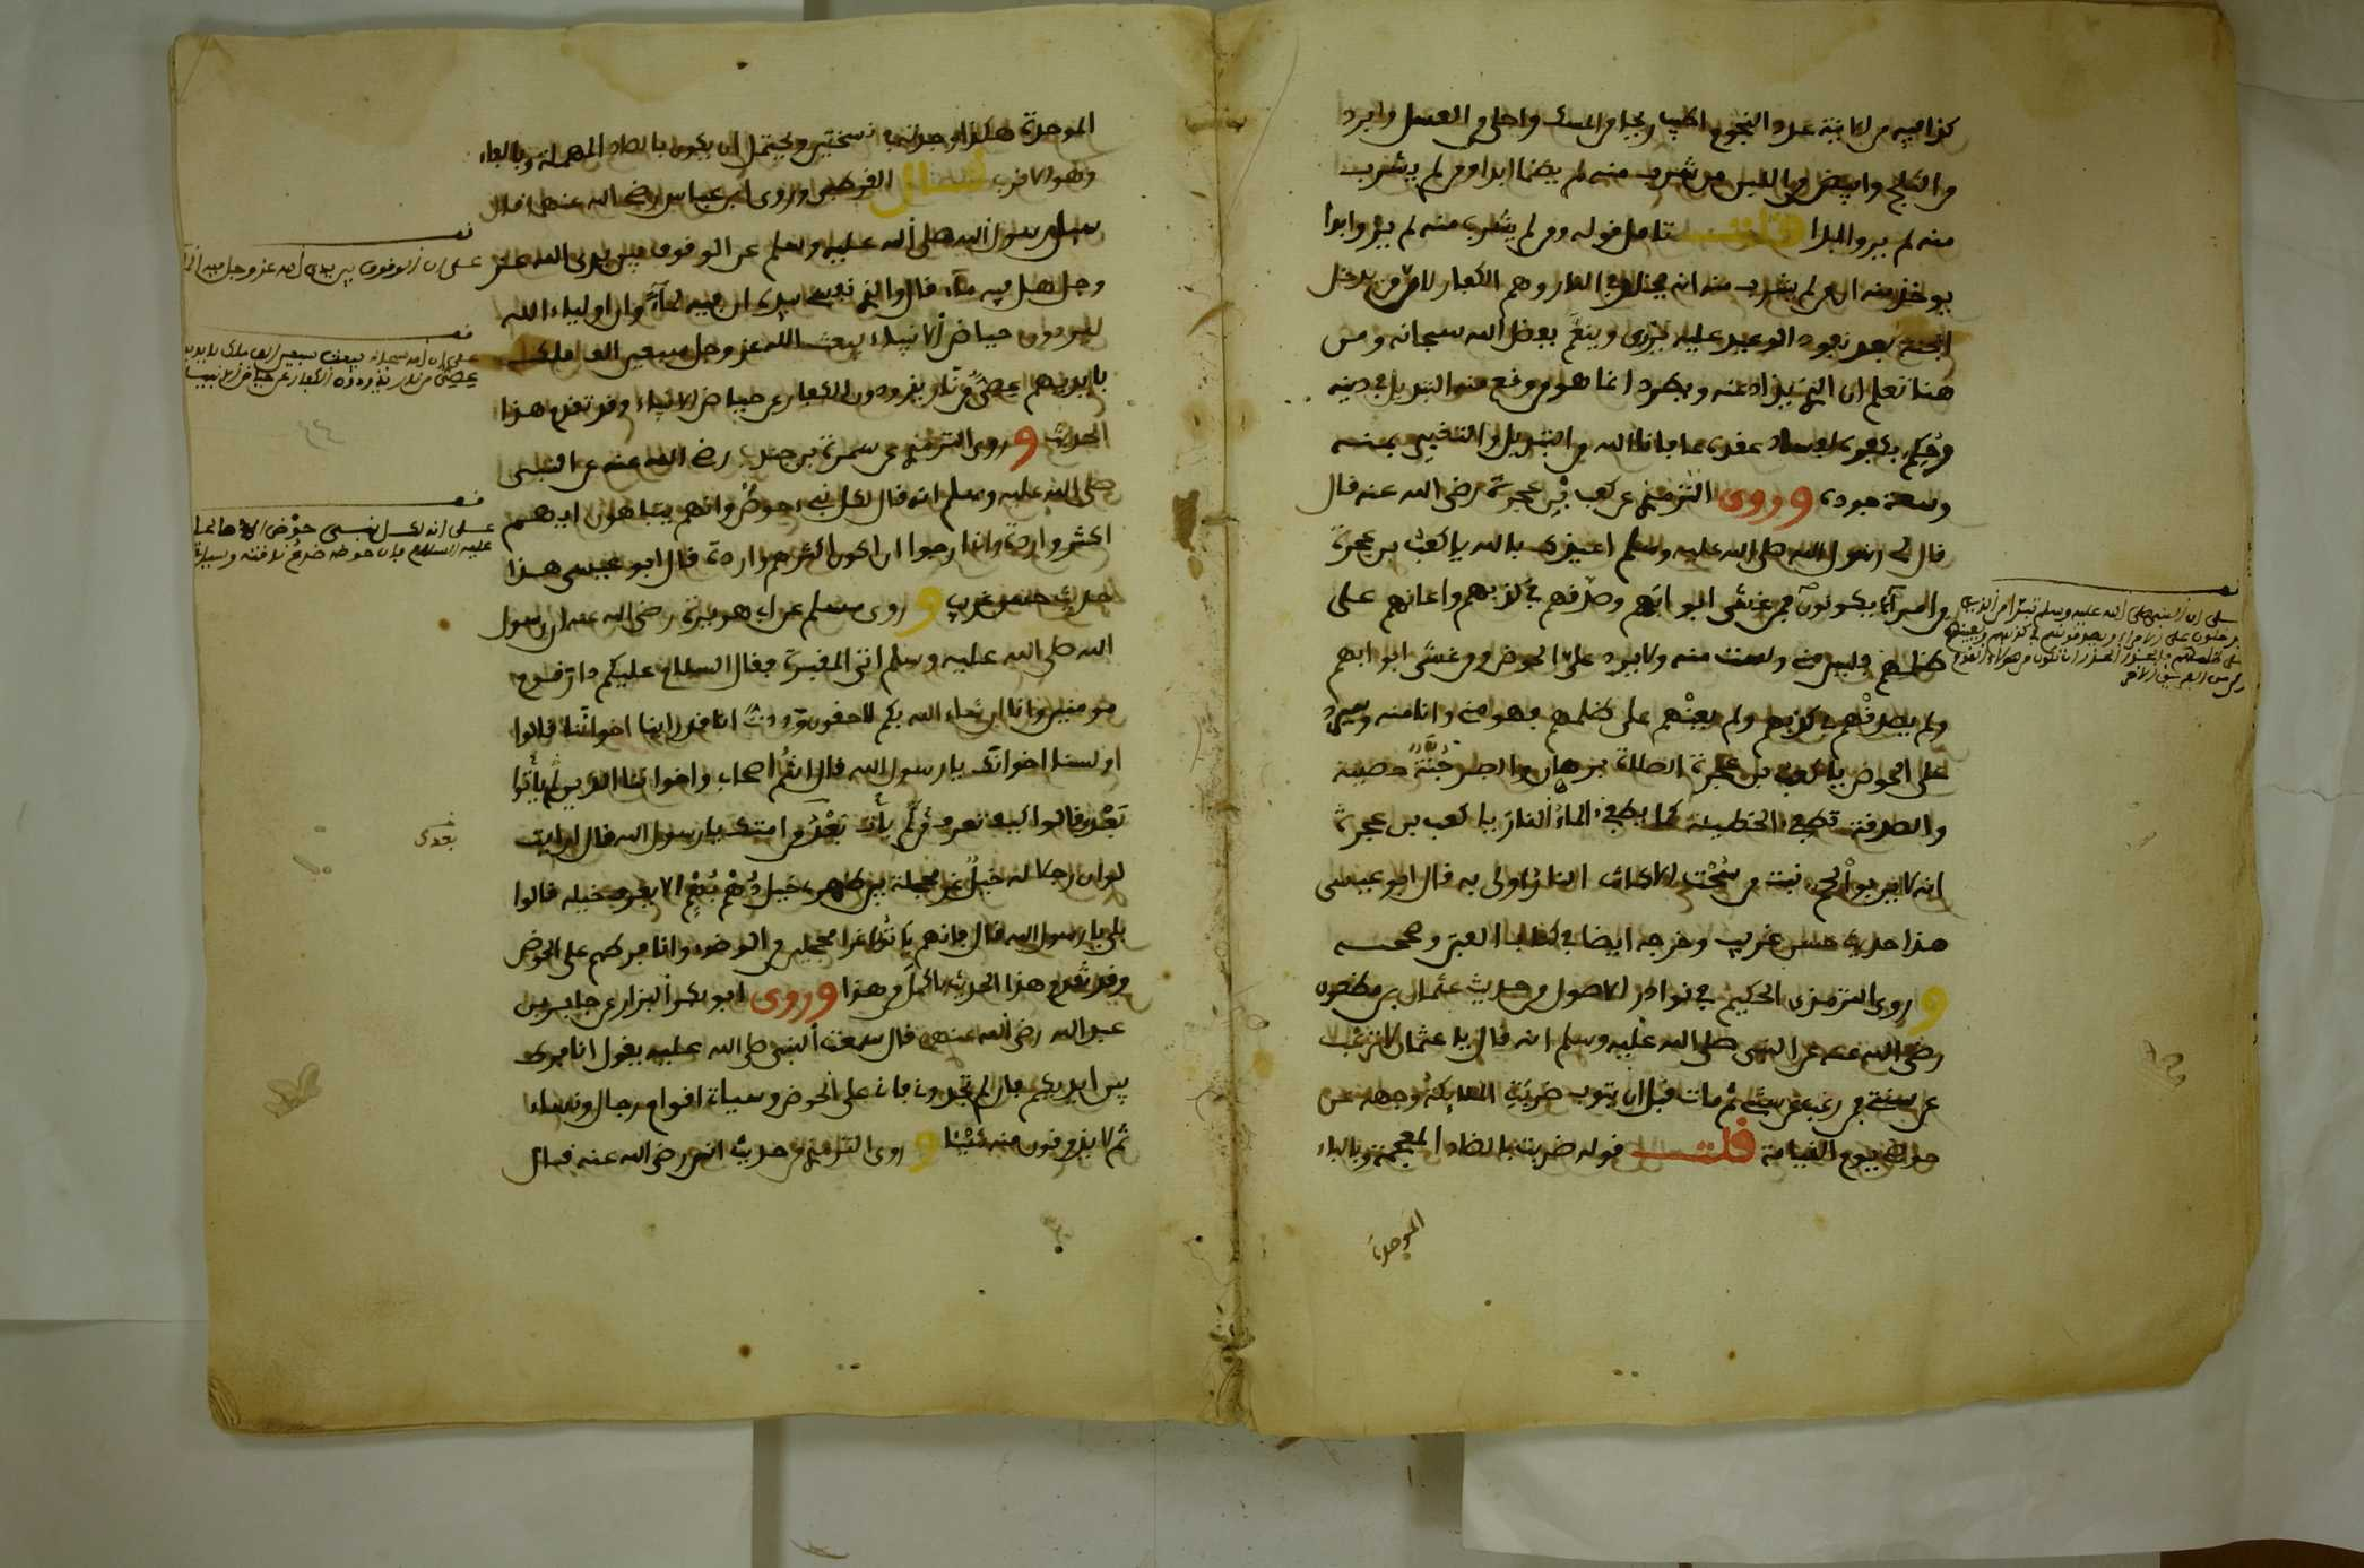 كذا فيه من الانية عدد النجوم اطيب ريحا من المسك واحلى من العسل وابرد
من الثلج وابيض من اللبن من شرب منه لم يظما ابدا ومن لم يشرب
منه لم يرو ابدا قلت تامل قوله ومن لم يشرب منه لم يرو ابدا
يوخذ منه ان من لم يشرب منه انه مخلد في النار وهم الكفار لان من يدخل
الجنة بعد نفوذ الوعيد عليه يروى وينعم بفضل الله سبحانه ومن
هنا تعلم ان الذي يذاد عنه ويطرد انما هو من وقع منه التبديل في دينه
وسعة جوده وروى الترمذي عن كعب بن عجرة رضي الله عنه قال
قال لي رسول الله صلى الله عليه وسلم اعيذك بالله يا كعب بن عجرة
من امراء يكونون فمن غشى ابوابهم وصدقهم في كذبهم واعانهم على
ظلمهم فليس مني ولست منه ولا يرد على الحوض ومن غشى ابوابهم
ولم يصدقهم في كذبهم ولم يعنهم على ظلمهم فهو مني وانا منه وسيرد
على الحوض يا كعب بن عجرة الصلاة برهان والصبر جنة حصينة
والصدقة تطفئ الخطيئة كما يطفئ الماء النار يا كعب بن عجرة
انه لا يربو لحم نبت من سحت الا كانت النار اولى به قال ابو عيسى
هذا حديث حسن غريب وخرجه ايضا في كتاب الفتن وصححه
وروى الترمذي الحكيم في نوادر الاصول من حديث عثمان بن مظعون
رضي الله عنه عن النبي صلى الله عليه وسلم انه قال يا عثمان لا ترغب
عن سنتي فمن رغب عن سنتي ثم مات قبل ان يتوب ضربت الملائكة وجهه عن
حوضي يوم القيامة قلت قوله ضربت بالضاد المعجمة وبالباء
الموحدة
الموحدة هكذا وجدته في نسختين ويحتمل ان يكون بالصاد المهملة وبالفاء
وهو الاقرب قال القرطبي وروى ابن عباس رضي الله عنهما قال
سيل رسول الله صلى الله عليه وسلم عن الوقوف بين يدي الله عز
وجل هل فيه ماء قال والذي نفسي بيده ان فيه لماء وان اولياء الله
ليردون حياض الانبياء يبعث الله عز وجل سبعين الف ملك
بايديهم عصي من نار يذودون الكفار عن حياض الانبياء وقد تقدم هذا
الحديث وروى الترمذي عن سمرة بن جندب رضي الله عنه عن النبي
صلى الله عليه وسلم انه قال لكل نبيء حوض وانهم يتباهون ايهم
اكثر واردة وانا ارجوا ان اكون اكثرهم واردة قال ابو عيسى هذا
حديث حسن غريب وروى مسلم عن ابي هريرة رضي الله عنه ان رسول
الله صلى الله عليه وسلم اتى المقبرة فقال السلام عليكم دار قوم
مومنين وانا ان شاء الله بكم لاحقون وددت انا قد راينا اخواننا قالوا
اولسنا اخوانك يا رسول الله قال انتم اصحابي واخواننا الذين لم ياتوا
بعد فقالوا كيف تعرف من لم يات بعد من امتك يا رسول الله قال ارايت
لو ان رجلا له خيل غر محجلة بين ظهري خيل دهم بهم الا يعرف خيله قالوا
بلى يا رسول الله قال فانهم ياتون غرا محجلين من الوضوء وانا فرطهم على الحوض
وقد تقدم هذا الحديث اكمل من هذا وروى ابو بكر البزار عن جابر بن
عبد الله رضي الله عنهما قال سمعت النبي صلى الله عليه يقول انا فرطكم
بين ايديكم فان لم تجدوني فانا على الحوض وسياتي اقوام رجال ونساء
ثم لا يذوقون منه شيئا وروى الترمذي من حديث انس رضي الله عنه قال
على ان الوقوف بين يدي الله عز وجل فيه الماء
بعدي